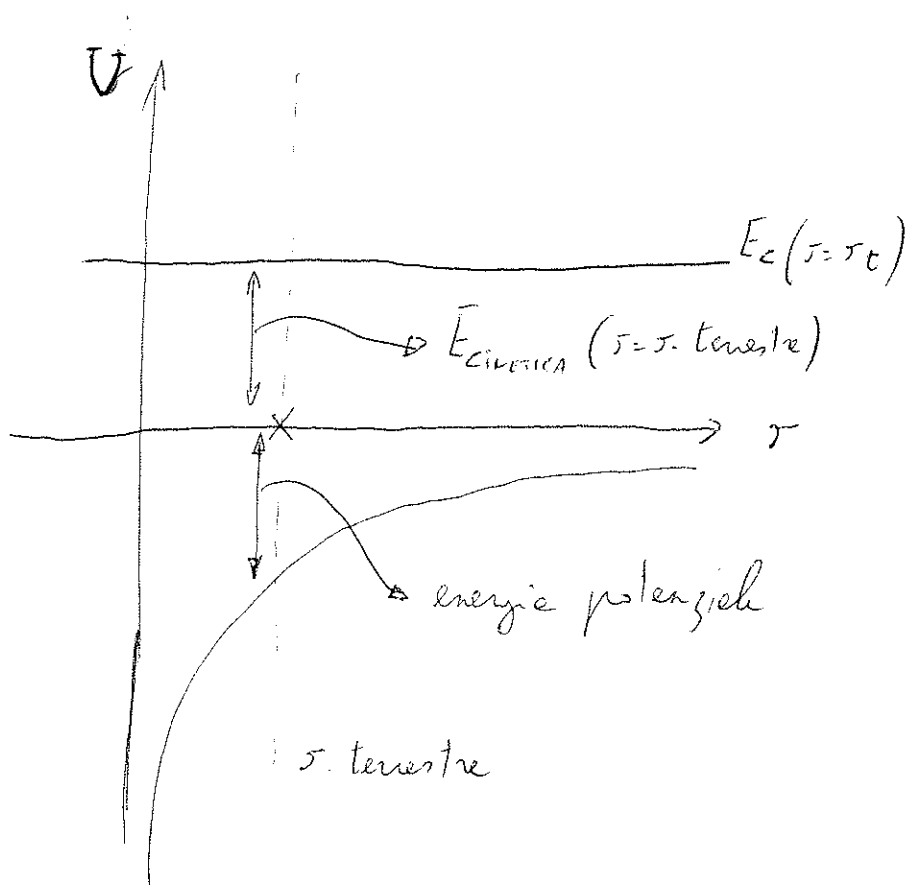 U
E_c (r = r_t)
E_CINETICA (r = r. terrestre)
r
energia potenziale
r. terrestre